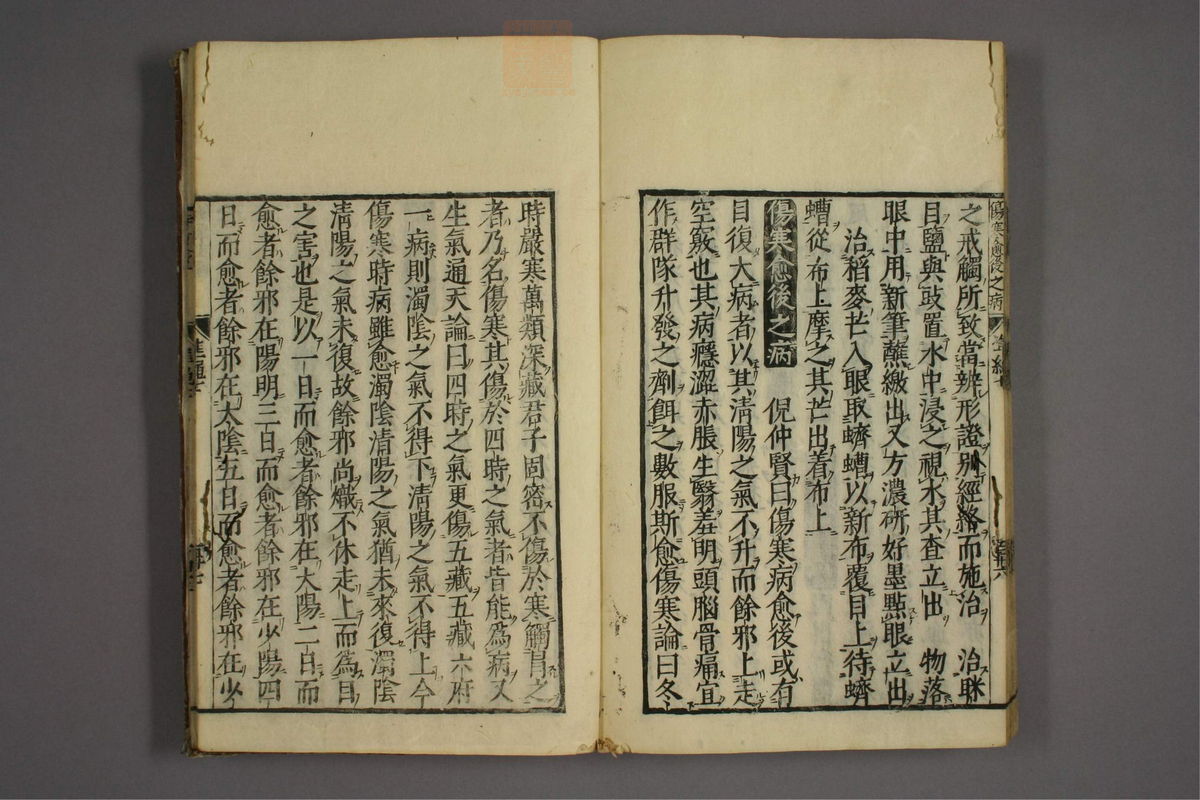 傷寒愈後之病
之戒觸所致當辨形證別經絡而施治 治眯
目鹽與豉置水中浸之視水其查立出 物落
眼中用新筆蘸繳出又方濃硏好墨點眼立出
治稻麥芒入眼取蠐螬以新布覆目上待蠐
螬從布上摩之其芒出着布上
傷寒愈後之病 倪仲賢曰傷寒病愈後或有
目復大病者以其淸陽之氣不升而餘邪上走
空竅也其病癮澀赤脹生翳羞明頭腦骨痛宜
作群隊升發之劑餌之數服斯愈傷寒論曰冬
時嚴寒萬類深藏君子固密不傷於寒觸冒之
者乃名傷寒其傷於四時之氣者皆能爲病又
生氣通天論曰四時之氣更傷五藏五藏六府
一病則濁陰之氣不得下淸陽之氣不得上今
傷寒時病雖愈濁陰淸陽之氣猶未來復濁陰
淸陽之氣未復故餘邪尚熾不休走上而爲目
之害也是以一日而愈者餘邪在太陽二日而
愈者餘邪在陽明三日而愈者餘邪在少陽四
日而愈者餘邪在太陰五日而愈者餘邪在少